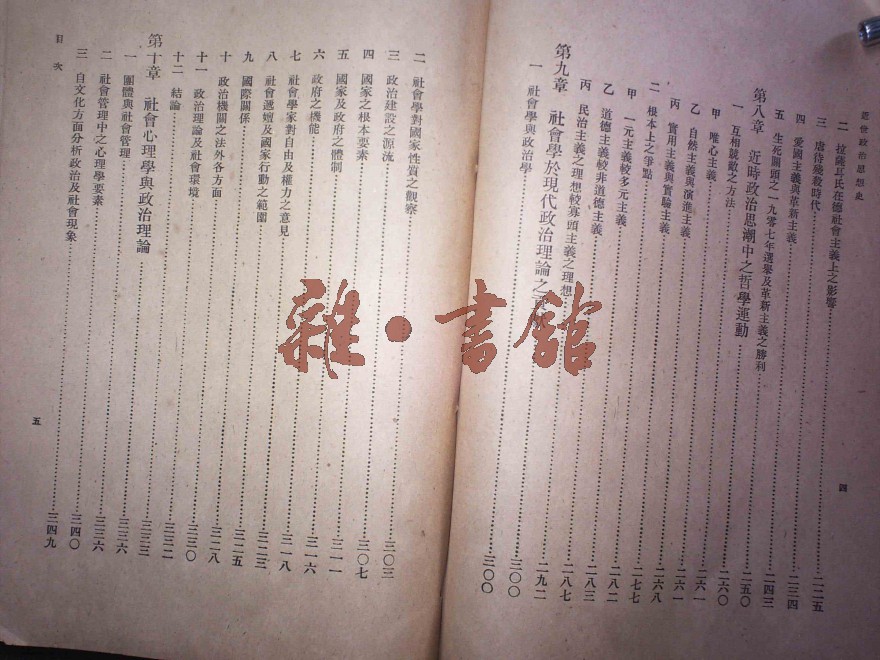 近世政治思想史
二 拉薩爾氏在德社會主義上之影響 二二五
三 虐待殘殺時代 二三四
四 愛國主義與革新主義 二四三
五 生死關頭之一九零七年選舉及革新主義之勝利 二五〇
第八章 近時政治思潮中之哲學運動 二六〇
一 互相競敵之方法 二六一
甲 唯心主義 二六一
乙 自然主義與演進主義
丙 實用主義與實驗主義 二六八
二 根本上之爭點 二七七
甲 一元主義較多元主義 二八二
乙 道德主義較非道德主義 二八三
丙 民治主義之理想較寡頭主義之理想 二八七
第九章 社會學於現代政治理論之 二九二
一 社會學與政治學 三〇〇
四
二 社會學對國家性質之觀察 三〇三
三 政治建設之源流
四 國家之根本要素 三〇七
五 國家及政府之體制 三一一
六 政府之機能 三一六
七 社會學家對自由及權力之意見 三一八
八 社會遞嬗及國家行動之範圍 三二三
九 國際關係 三二五
十 政治機關之法外各方面 三二八
十一 政治理論及社會環境 三三〇
十二 結論 三三二
第十章 社會心理學與政治理論 三三三
一 團體與社會管理 三三六
二 社會管理中之心理學要素 三三六
三 自文化方面分析政治及社會現象 三四〇
三四九
目次
五
雜·書館